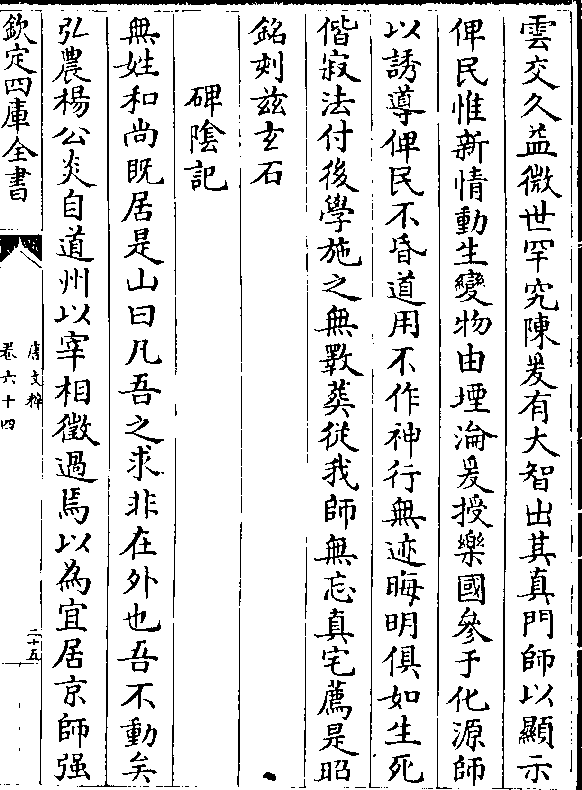 雲交久益微世罕究陳爰有大智出其真門師以顯示
俾民惟新情動生變物由堙淪爰授樂國參于化源師
以誘導俾民不昏道用不作神行無迹晦明俱如生死
偕寂法付後學施之無斁葬從我師無忘真宅薦是昭
銘刻兹玄石
碑陰記
無姓和尚既居是山曰凡吾之求非在外也吾不動矣
弘農楊公炎自道州以宰相徵過焉以為宜居京師强
欽定四庫全書
唐文粹
卷六十四
二十五